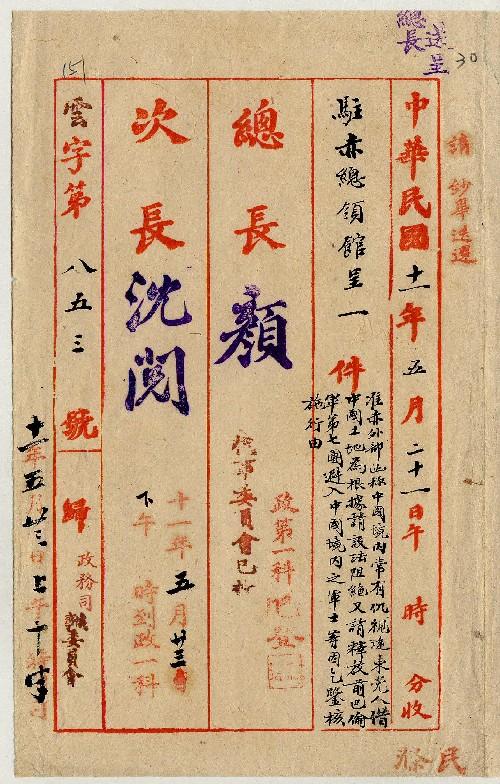 總長
送呈
30
請鈔畢送還
中華民國十一年五月二十一日午 時 分收
駐赤總領館呈一件
准赤外部函稱中國境內常有仇視遠東党人借
中國土地為根據請設法阻絕又請釋放前巴倫
第七團避入中國境內之軍士等因乞鑒核
施行由
總長 顏
政第一科
委員會已抄
次長 沈閱
十一年五月廿三
下午 時到政一科
雲字第八五三號
歸 政務司
委員會
十一年五月廿三日上午十時半
民